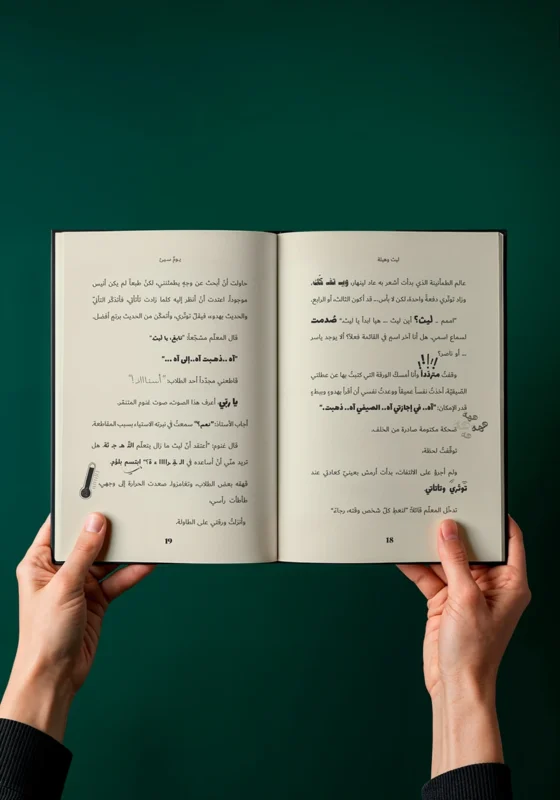 ليث وهيلة
عالم الطمأنينة الذي بدأت أشعر به عاد لينهار،
وزاد توتّري دفعةً واحدة، لكن لا بأس... قد أكون الثالث، أو الرابع.
"اممم .. ليث؟ أين ليث ... هيا ابدأ يا ليث." صُدمت
لسماع اسمي. هل أنا آخر اسمٍ في القائمة فعلًا؟ ألا يوجد ياسر
... أو ناصر؟
!!!
وقفتُ متردّداً وأنا أمسكُ الورقة التي كتبتُ بها عن عطلتي
الصّيفيّة، أخذتُ نفساً عميقاً ووعدتُ نفسي أن أقرأ بهدوءٍ وببطءٍ
قدر الإمكان: "آه.. في إجازتي آه.. الصيفي آه.. ذهبت."
هههه
ههه
ضحكة مكتومة صادرة من الخلف.
توقّفتُ لحظة،
ولم أجرؤ على الالتفات، بدأت أرمش بعينيّ كعادتي عند
توتّري وتأتأتي.
تدخّل المعلّم قائلًا: "لنعطِ كلّ شخصٍ وقته، رجاءً."
18
يومٌ سيئ
حاولت أنْ أبحث عن وجهٍ يطمئنني، لكنْ طبعاً لم يكن أنيس
موجوداً. اعتدت أنْ أنظر إليه كلما زادت تأتأتي، فأتذكّر التأنّي
والحديث بهدوء، فيقلّ توتّري، وأتمكّن من الحديث برتمٍ أفضل.
قال المعلّم مشجّعاً: "تابعْ، يا ليث"
"آه ..ذهبت آه..إلى آه ..."
قاطعني مجدّداً أحد الطلاب: "أستاااااذ!"
يا ربّي. أعرف هذا الصوت، صوت غنوم المتنمّر.
أجاب الأستاذ: "نعم؟" سمعتُ في نبرته الاستياء بسبب المقاطعة.
قال غنوم: "أعتقد أنّ ليث ما زال يتعلّم الـتّـ هـ جـ ئة. هل
تريد منّي أنْ أساعده في الـ قـ راااا ء ة؟" ابتسم بلؤم.
قهقه بعض الطلاب، وتغامزوا. صعدت الحرارة إلى وجهي،
طأطأت رأسي،
وأنزلتُ ورقتي على الطاولة.
19